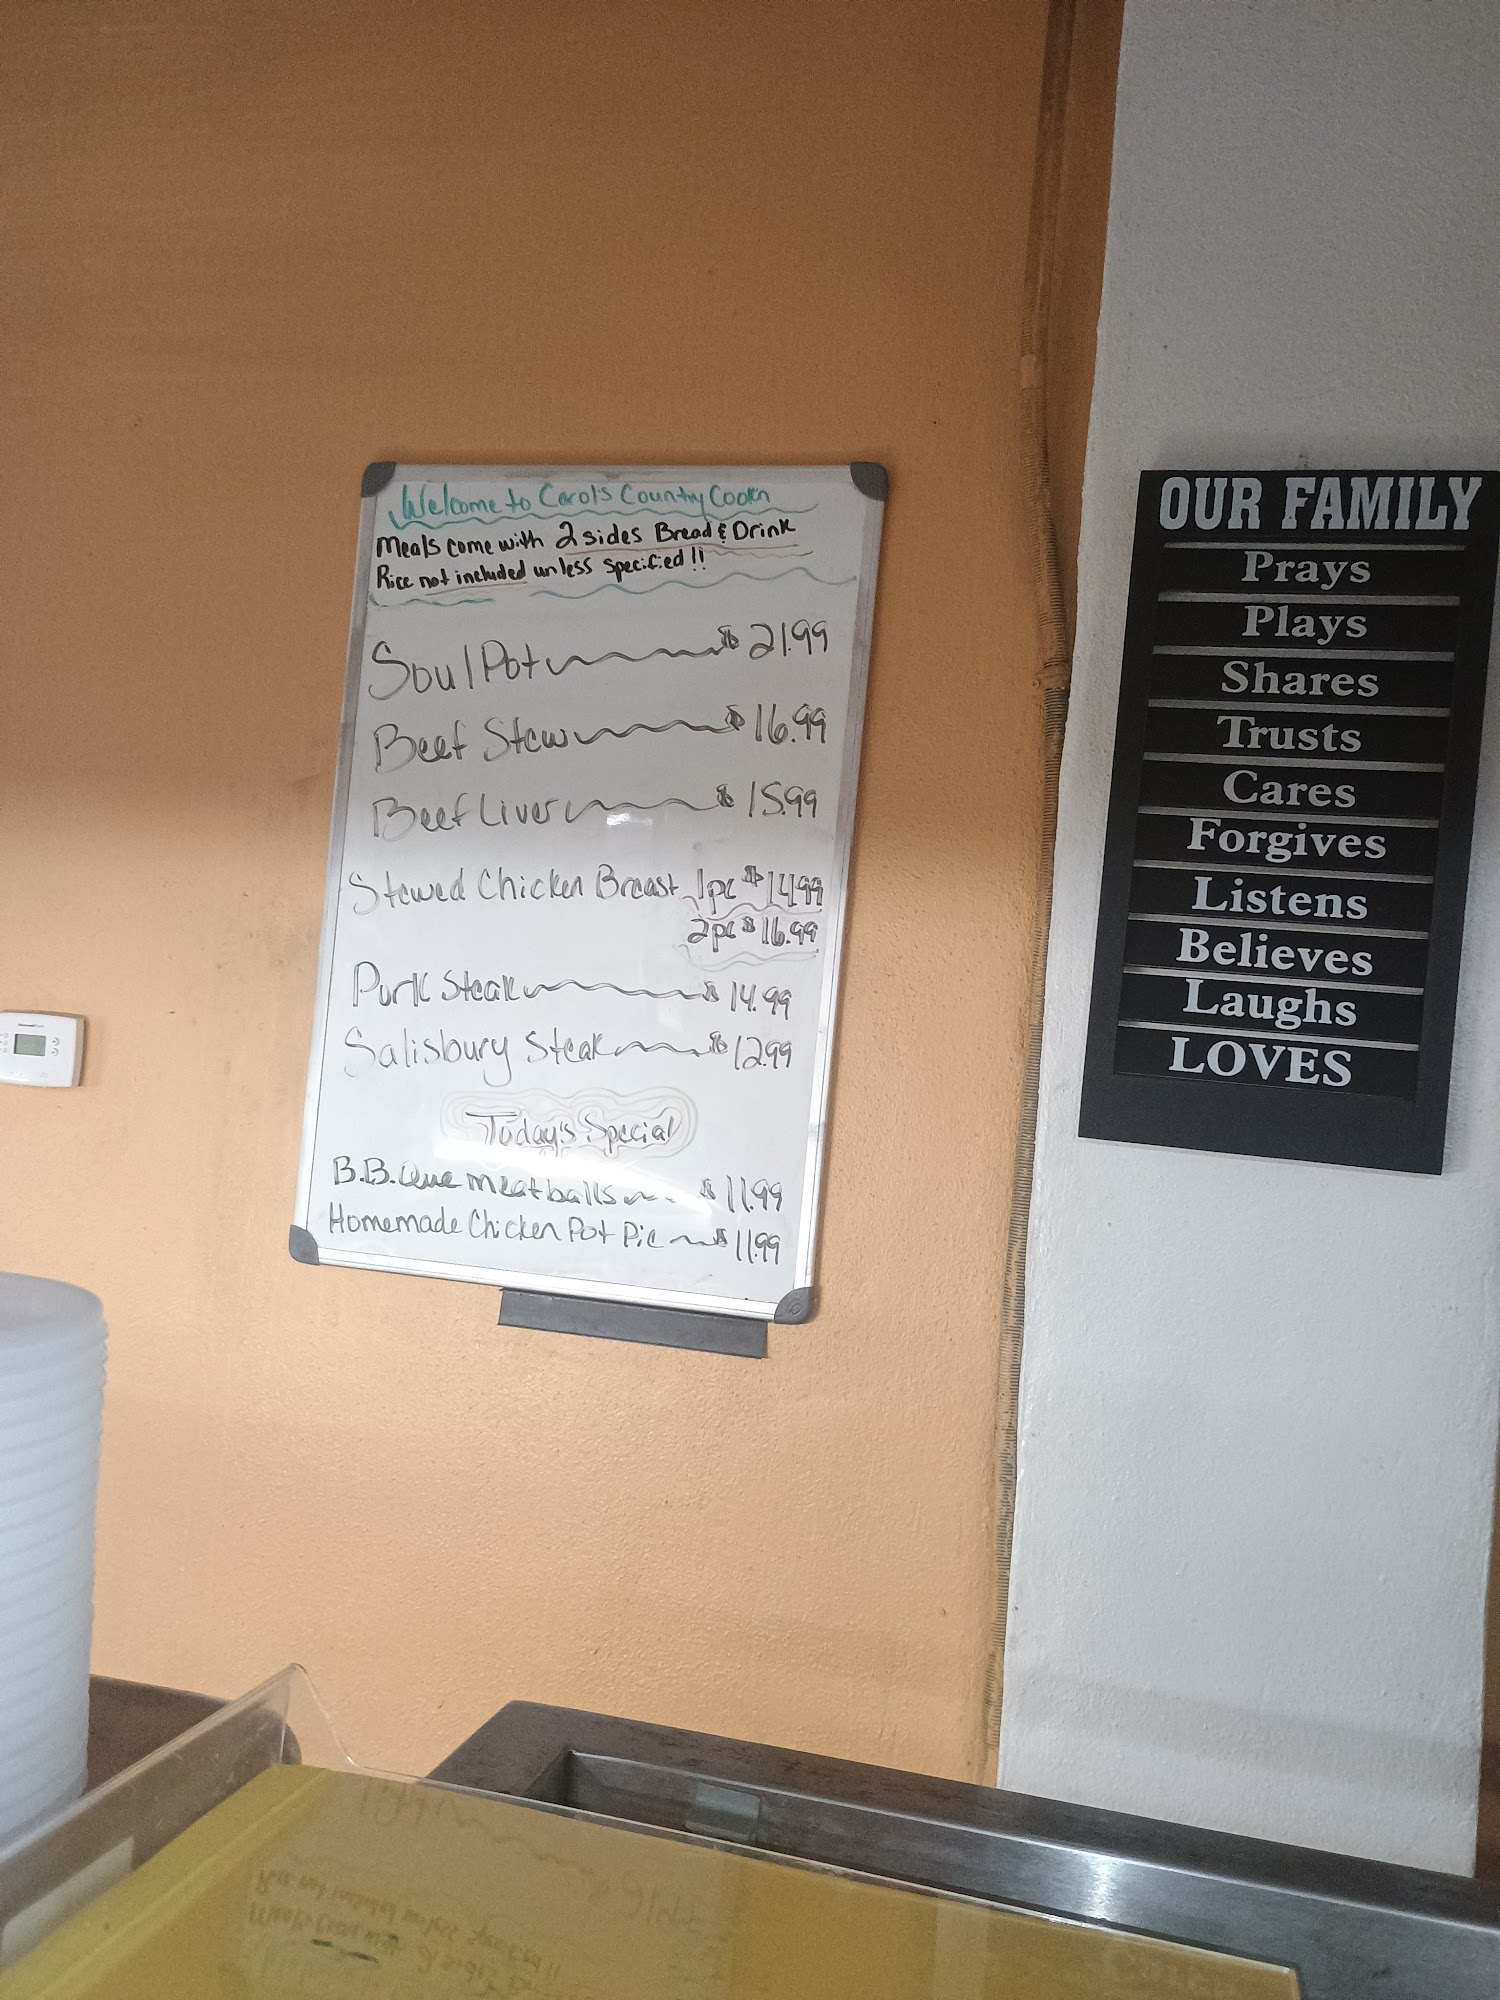 Welcome to Carol's Country Cookn
Meals come with 2 sides Bread & Drink
Rice not included unless specified!!
Soul Pot $21.99
Beef Stew $16.99
Beef Liver $15.99
Stewed Chicken Breast 1pc $14.99
2pc $16.99
Pork Steak $14.99
Salisbury Steak $12.99
Today's Special
B.B.Que meatballs $11.99
Homemade Chicken Pot Pie $11.99
OUR FAMILY
Prays
Plays
Shares
Trusts
Cares
Forgives
Listens
Believes
Laughs
LOVES